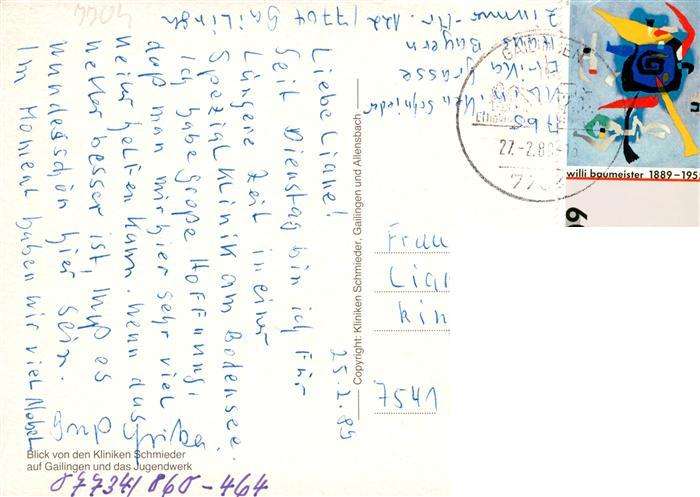 4044
Zimmer-Nr. 122 / 7704 Gailingen
Erika Grasse
Kliniken Schmieder
25.2.89
Liebe Liane!
Seit Dienstag bin ich für
längere Zeit in einer
Spezialklinik am Bodensee.
Ich habe große Hoffnung,
daß man mir hier sehr viel
weiter helfen kann. Wenn das
Wetter besser ist, muß es
wundesschön hier sein.
Im Moment haben wir viel Nebel
Gruß Erika
Copyright: Kliniken Schmieder, Gailingen und Allensbach
27.-2.89
willi baumeister 1889-195
Frau
Lian
kin
7541
Blick von den Kliniken Schmieder
auf Gailingen und das Jugendwerk
07734/860-464